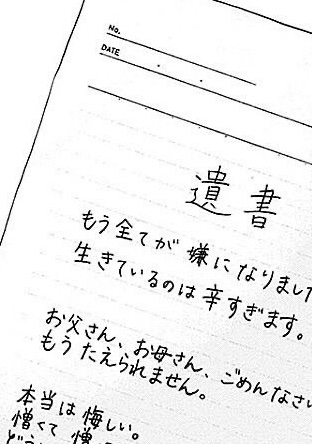 No.
DATE
遺書
もう全てが嫌になりました
生きているのは辛すぎます。
お父さん、お母さん、ごめんなさい
もうたえられません。
本当は悔しい。
憎くて